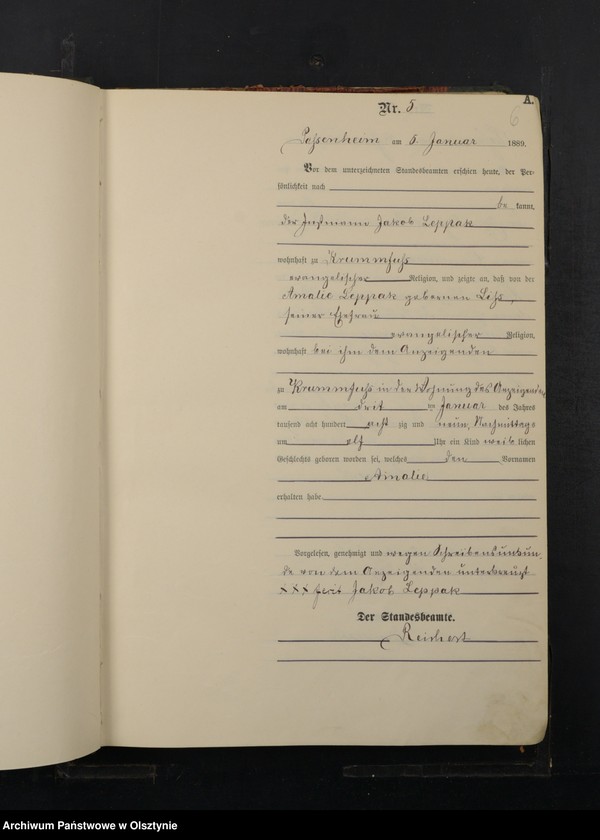 A.
Nr. 5
6
Passenheim am 5 Januar 1889.
Vor dem unterzeichneten Standesbeamten erschien heute, der Per-
sönlichkeit nach
be kannt,
der Instmann Jakob Leppak
wohnhaft zu Krummfuhs
evangelischer Religion, und zeigte an, daß von der
Amalie Leppak gebornen Liss,
seiner Ehefrau
evangelischer Religion,
wohnhaft bei ihm dem Anzeigenden
zu Krummfuhs in der Wohnung des Anzeigenden
am drit ten Januar des Jahres
tausend acht hundert acht zig und neun, Nachmittags
um elf Uhr ein Kind weib lichen
Geschlechts geboren worden sei, welches den Vornamen
Amalie
erhalten habe.
Vorgelesen, genehmigt und wegen Schreibensunkun-
de von dem Anzeigenden unterkreuzt
XXX Jakob Leppak
Der Standesbeamte.
Reichert
Archiwum Państwowe w Olsztynie